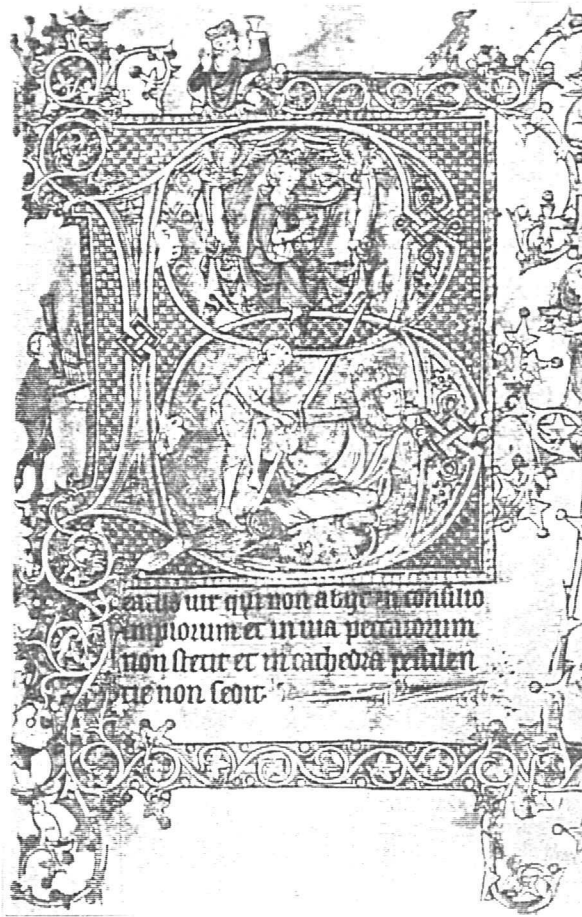 B
eatus uir qui non abijt in consilio
impiorum et in uia peccatorum
non stetit et in cathedra pestilen
tie non sedit.